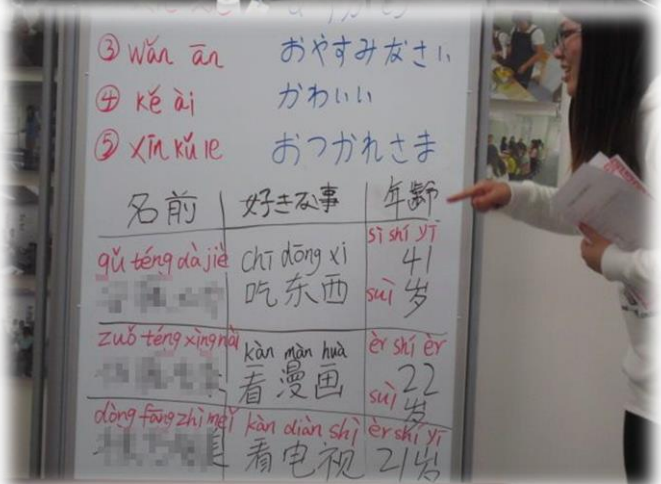 ③ Wǎn ān おやすみなさい
④ kě ài かわいい
⑤ xīn kǔ le おつかれさま
名前 好きな事 年齢
gǔ téng dà jiě chī dōng xi sì shí yī
吃东西 41
suì 岁
zuǒ téng xìng nài kàn màn huà èr shí èr
看漫画 22
suì 岁
dōng fāng zhì měi kàn diàn shì èr shí yī
美 看电视 21岁